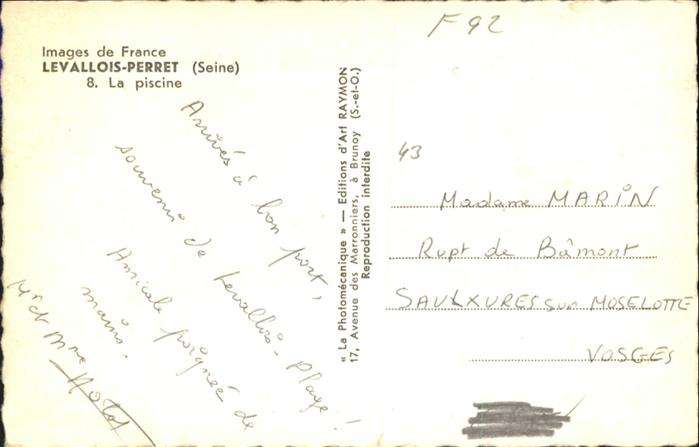 F 92
Images de France
LEVALLOIS-PERRET (Seine)
8. La piscine
Arrivés à bon port,
souvenir de Levallois-Plage !
Amicale poignée de
mains.
Mr et Mme
« La Photomécanique » — Editions d'Art RAYMON
17, Avenue des Marronniers, à Brunoy (S.-et-O.)
Reproduction interdite
43
Madame MARIN
Rupt de Bâmont
SAULXURES sur MOSELOTTE
VOSGES